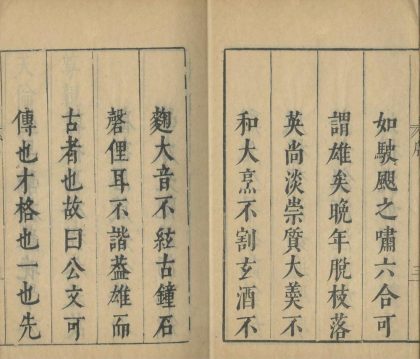 如駛飈之嘯六合可
謂雄矣晚年脫枝落
英尚淡崇質大羮不
和大烹不割玄酒不
麴大音不絃古鐘石
磬俚耳不諧葢雄而
古者也故曰公文可
傳也才格也一也先